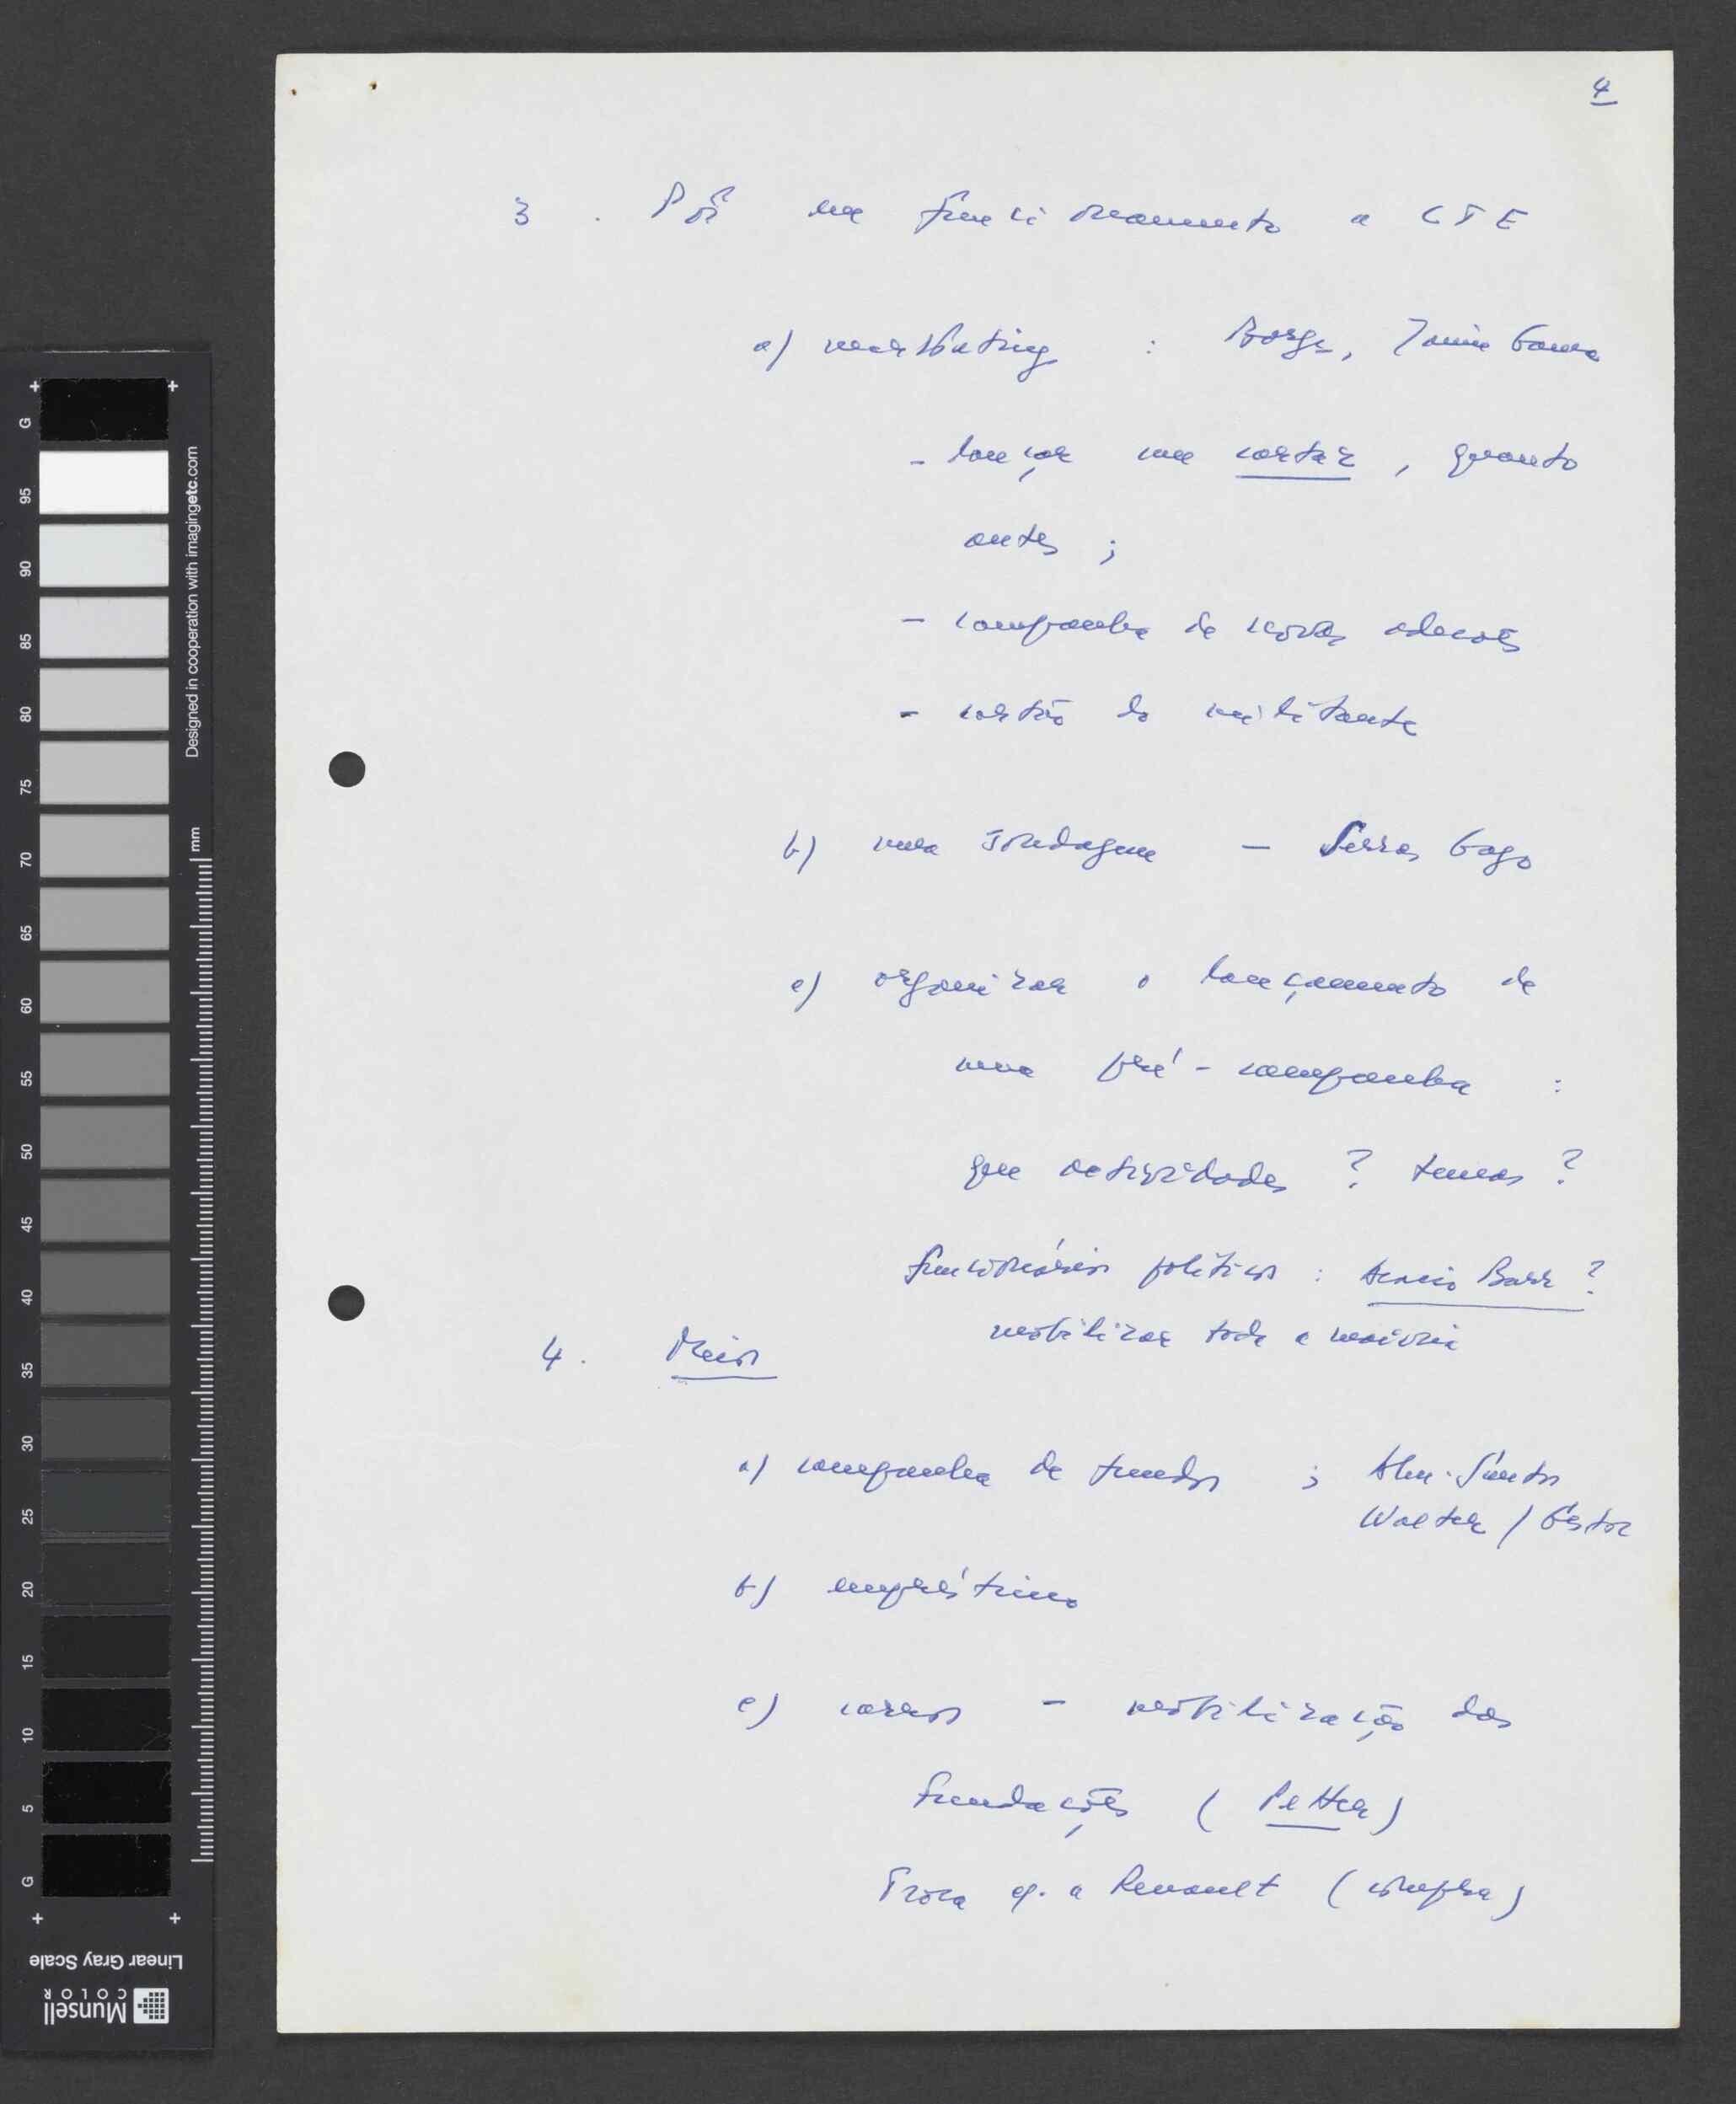 4
3. Pôr em funcionamento a CTE
a) marketing : Borges, Jaime Gama
- lançar um cartaz, quanto
antes ;
- campanha de novas adesões
- cartão do militante
b) uma sondagem — Serras Gago
c) organizar o lançamento de
uma pré-campanha :
que actividades ? temas ?
funcionários políticos : Acácio Barr ?
mobilizar toda a maioria
4. Meios
a) campanha de fundos ; Alm. Santos
Walter / Gestor
b) empréstimo
c) carros — mobilização das
fundações ( Petter )
Troca c/ a Renault (compra)
G
95
90
85
80
75
70
65
60
55
50
45
40
35
30
25
20
15
10
5
G
mm
Designed in cooperation with imagingetc.com
Linear Gray Scale
Munsell
COLOR